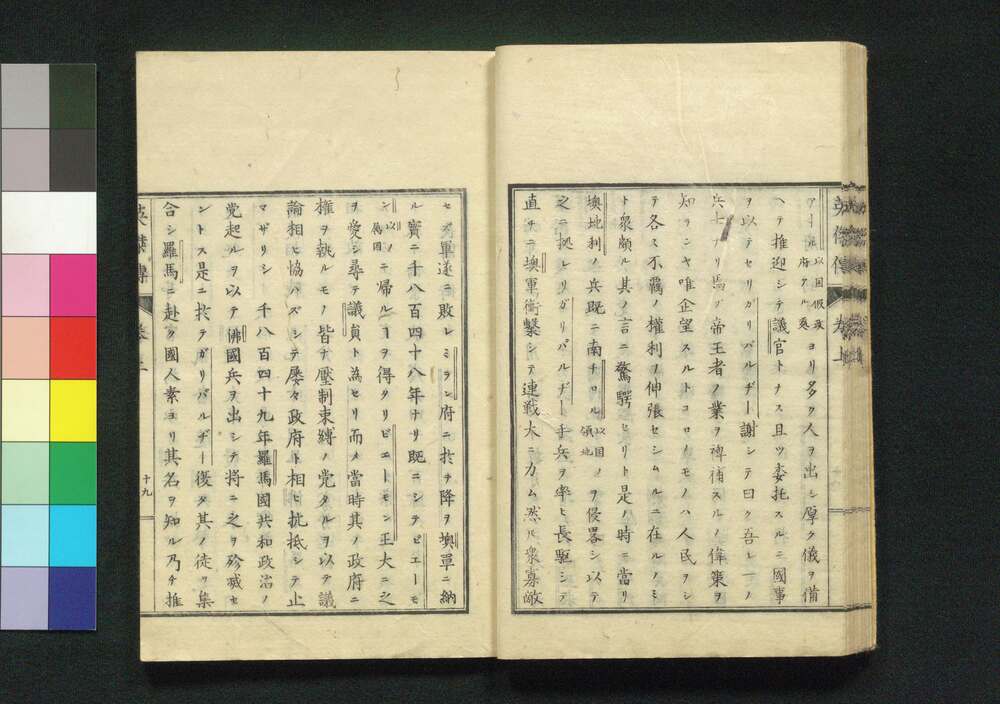 英傑傳 卷上
ヨリ多ク人ヲ出シ厚ク儀ヲ備
ヘテ推迎シテ議官トナス且ツ委托スルニ國事
ヲ以テセリガリバルヂー謝シテ曰ク吾レ一ノ
兵士ナリ焉ゾ帝王者ノ業ヲ裨補スルノ偉策ヲ
知ランヤ唯企望スルトコロノモノハ人民ヲシ
テ各々不羈ノ權利ヲ伸張セシムルニ在ルノミ
ト衆顧ル其ノ言ニ驚愕セリト是ノ時ニ當リ
墺地利ノ兵既ニ南チロル以國領地ノヲ侵畧シ以テ
之ニ拠レリガリバルヂー手兵ヲ率ヒ長駆シテ
直チニ墺軍衝撃シテ連戦大ニカム然ル衆寡敵
セズ軍遂ニ敗レミラン府ニ於テ降ヲ墺軍ニ納
ル實ニ千八百四十八年ナリ既ニシテピエーモ
ン以國ノニ帰ルヿヲ得タリピエーモン王大ニ之
ヲ愛シ尋テ議貞ト為セリ而メ當時其ノ政府ニ
權ヲ執ルモノ皆ナ壓制束縛ノ党タルヲ以テ議
論相ヒ協ハズシテ屡々政府ト相ヒ抗抵シテ止
マザリシ 千八百四十九年羅馬國共和政治ノ
党起ルヲ以テ佛國兵ヲ出シテ将ニ之ヲ殄滅セ
ントス是ニ於テガリバルヂー復タ其ノ徒ヲ集
合シ羅馬ニ赴ク國人素ヨリ其名ヲ知ル乃チ推
英傑傳 卷上 十九